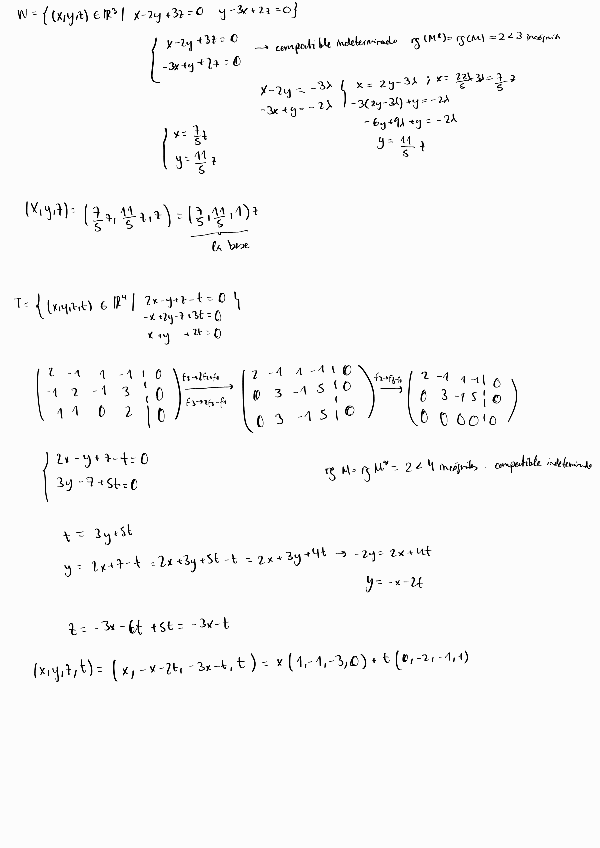 W = { (x,y,z) ∈ ℝ³ | x-2y+3z=0 y-3x+2z=0 }
{ x-2y+3z=0 → compatible indeterminado rg(M*)=rg(M)=2<3 incógnitas
-3x+y+2z=0
x-2y=-3λ { x=2y-3λ ; x=22λ/5-3λ=7/5 z
-3x+y=-2λ -3(2y-3λ)+y=-2λ
-6y+9λ+y=-2λ
{ x=7/5 z
y=11/5 z y=11/5 z
(x,y,z)=(7/5 z, 11/5 z, z)=(7/5, 11/5, 1)z
Es base
T = { (x,y,z,t) ∈ ℝ⁴ | 2x-y+z-t=0 }
-x+2y-z+3t=0
x+y +2t=0
( 2 -1 1 -1 | 0 ) ( 2 -1 1 -1 | 0 ) F3→F3-F2 ( 2 -1 1 -1 | 0 )
( -1 2 -1 3 | 0 ) F2→2F2+F1 F3→2F3-F1 ( 0 3 -1 5 | 0 ) ( 0 3 -1 5 | 0 )
( 1 1 0 2 | 0 ) ( 0 3 -1 5 | 0 ) ( 0 0 0 0 | 0 )
{ 2x-y+z-t=0
3y-z+5t=0 rg M=rg M*=2<4 incógnitas. compatible indeterminado
z = 3y+5t
y = 2x+z-t = 2x+3y+5t-t = 2x+3y+4t → -2y=2x+4t
y=-x-2t
z = -3x-6t+5t = -3x-t
(x,y,z,t) = (x, -x-2t, -3x-t, t) = x(1,-1,-3,0) + t(0,-2,-1,1)